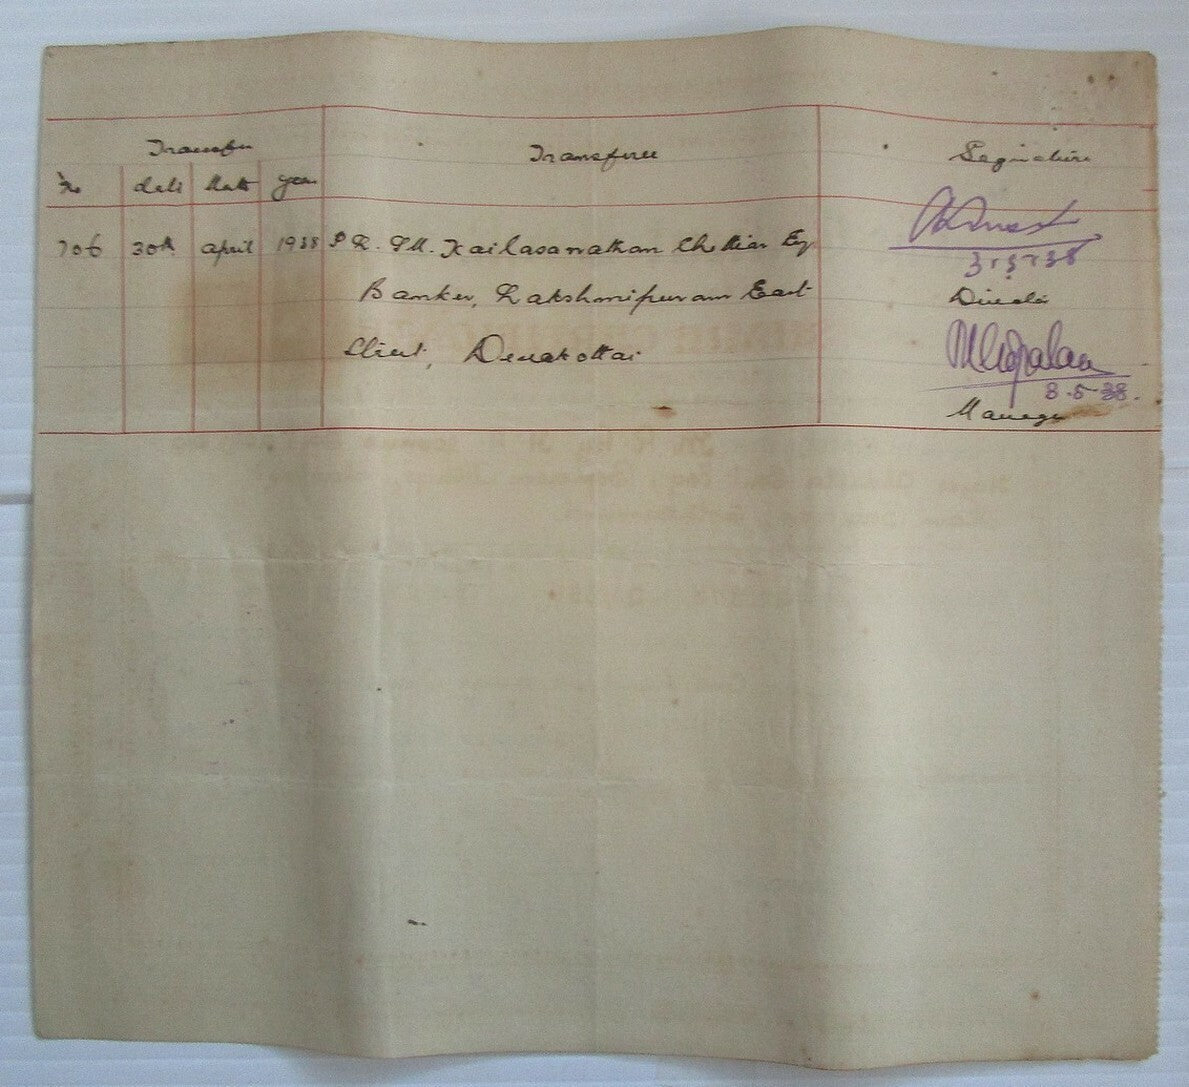 Transfer Transferee Signature
No date Month year
706 30th April 1938 P R. PM. Kailasanathan Chettiar Esq
3/5/38
Banker, Lakshmipuram East
Director
Street, Devakottai
3-5-38.
Manager